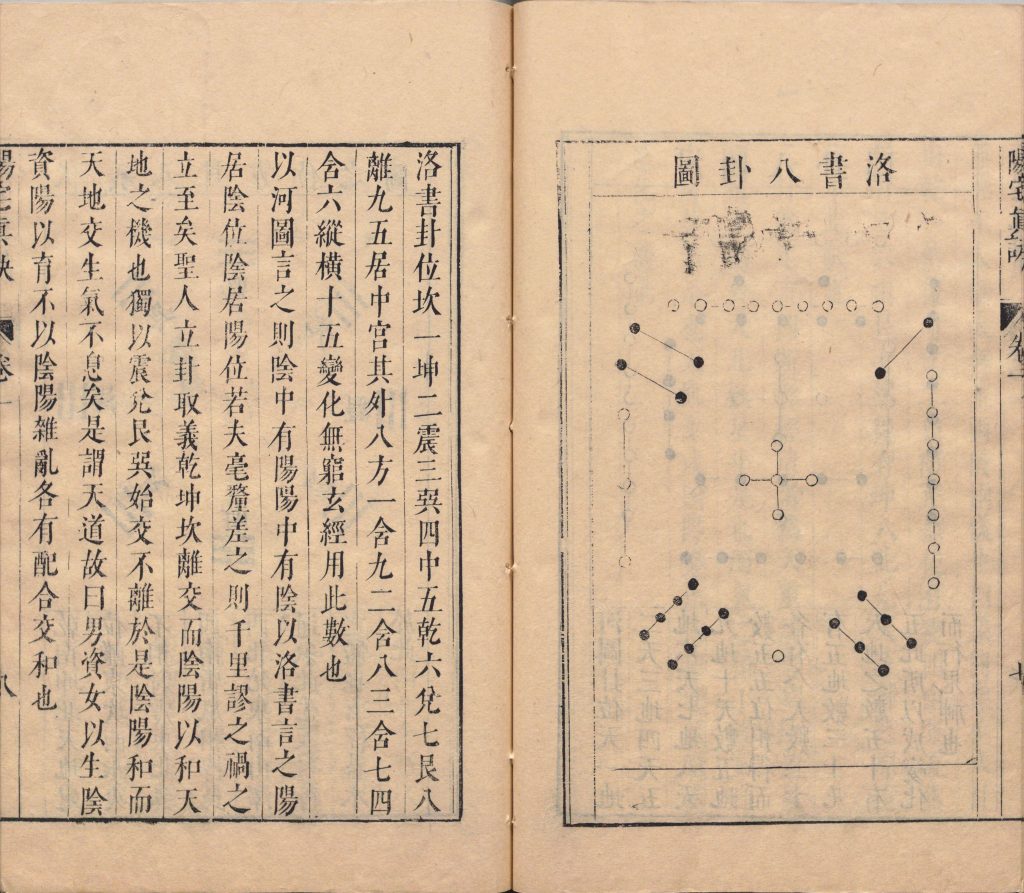 陽宅眞訣 卷一 七
洛書八卦圖
洛書卦位坎一坤二震三巽四中五乾六兌七艮八
離九五居中宮其外八方一含九二含八三含七四
含六縱橫十五變化無窮玄經用此數也
以河圖言之則陰中有陽陽中有陰以洛書言之陽
居陰位陰居陽位若夫毫釐差之則千里謬之禍之
立至矣聖人立卦取義乾坤坎離交而陰陽以和天
地之機也獨以震兌艮巽始交不離於是陰陽和而
天地交生氣不息矣是謂天道故曰男資女以生陰
資陽以育不以陰陽雜亂各有配合交和也
陽宅眞訣 卷一 八